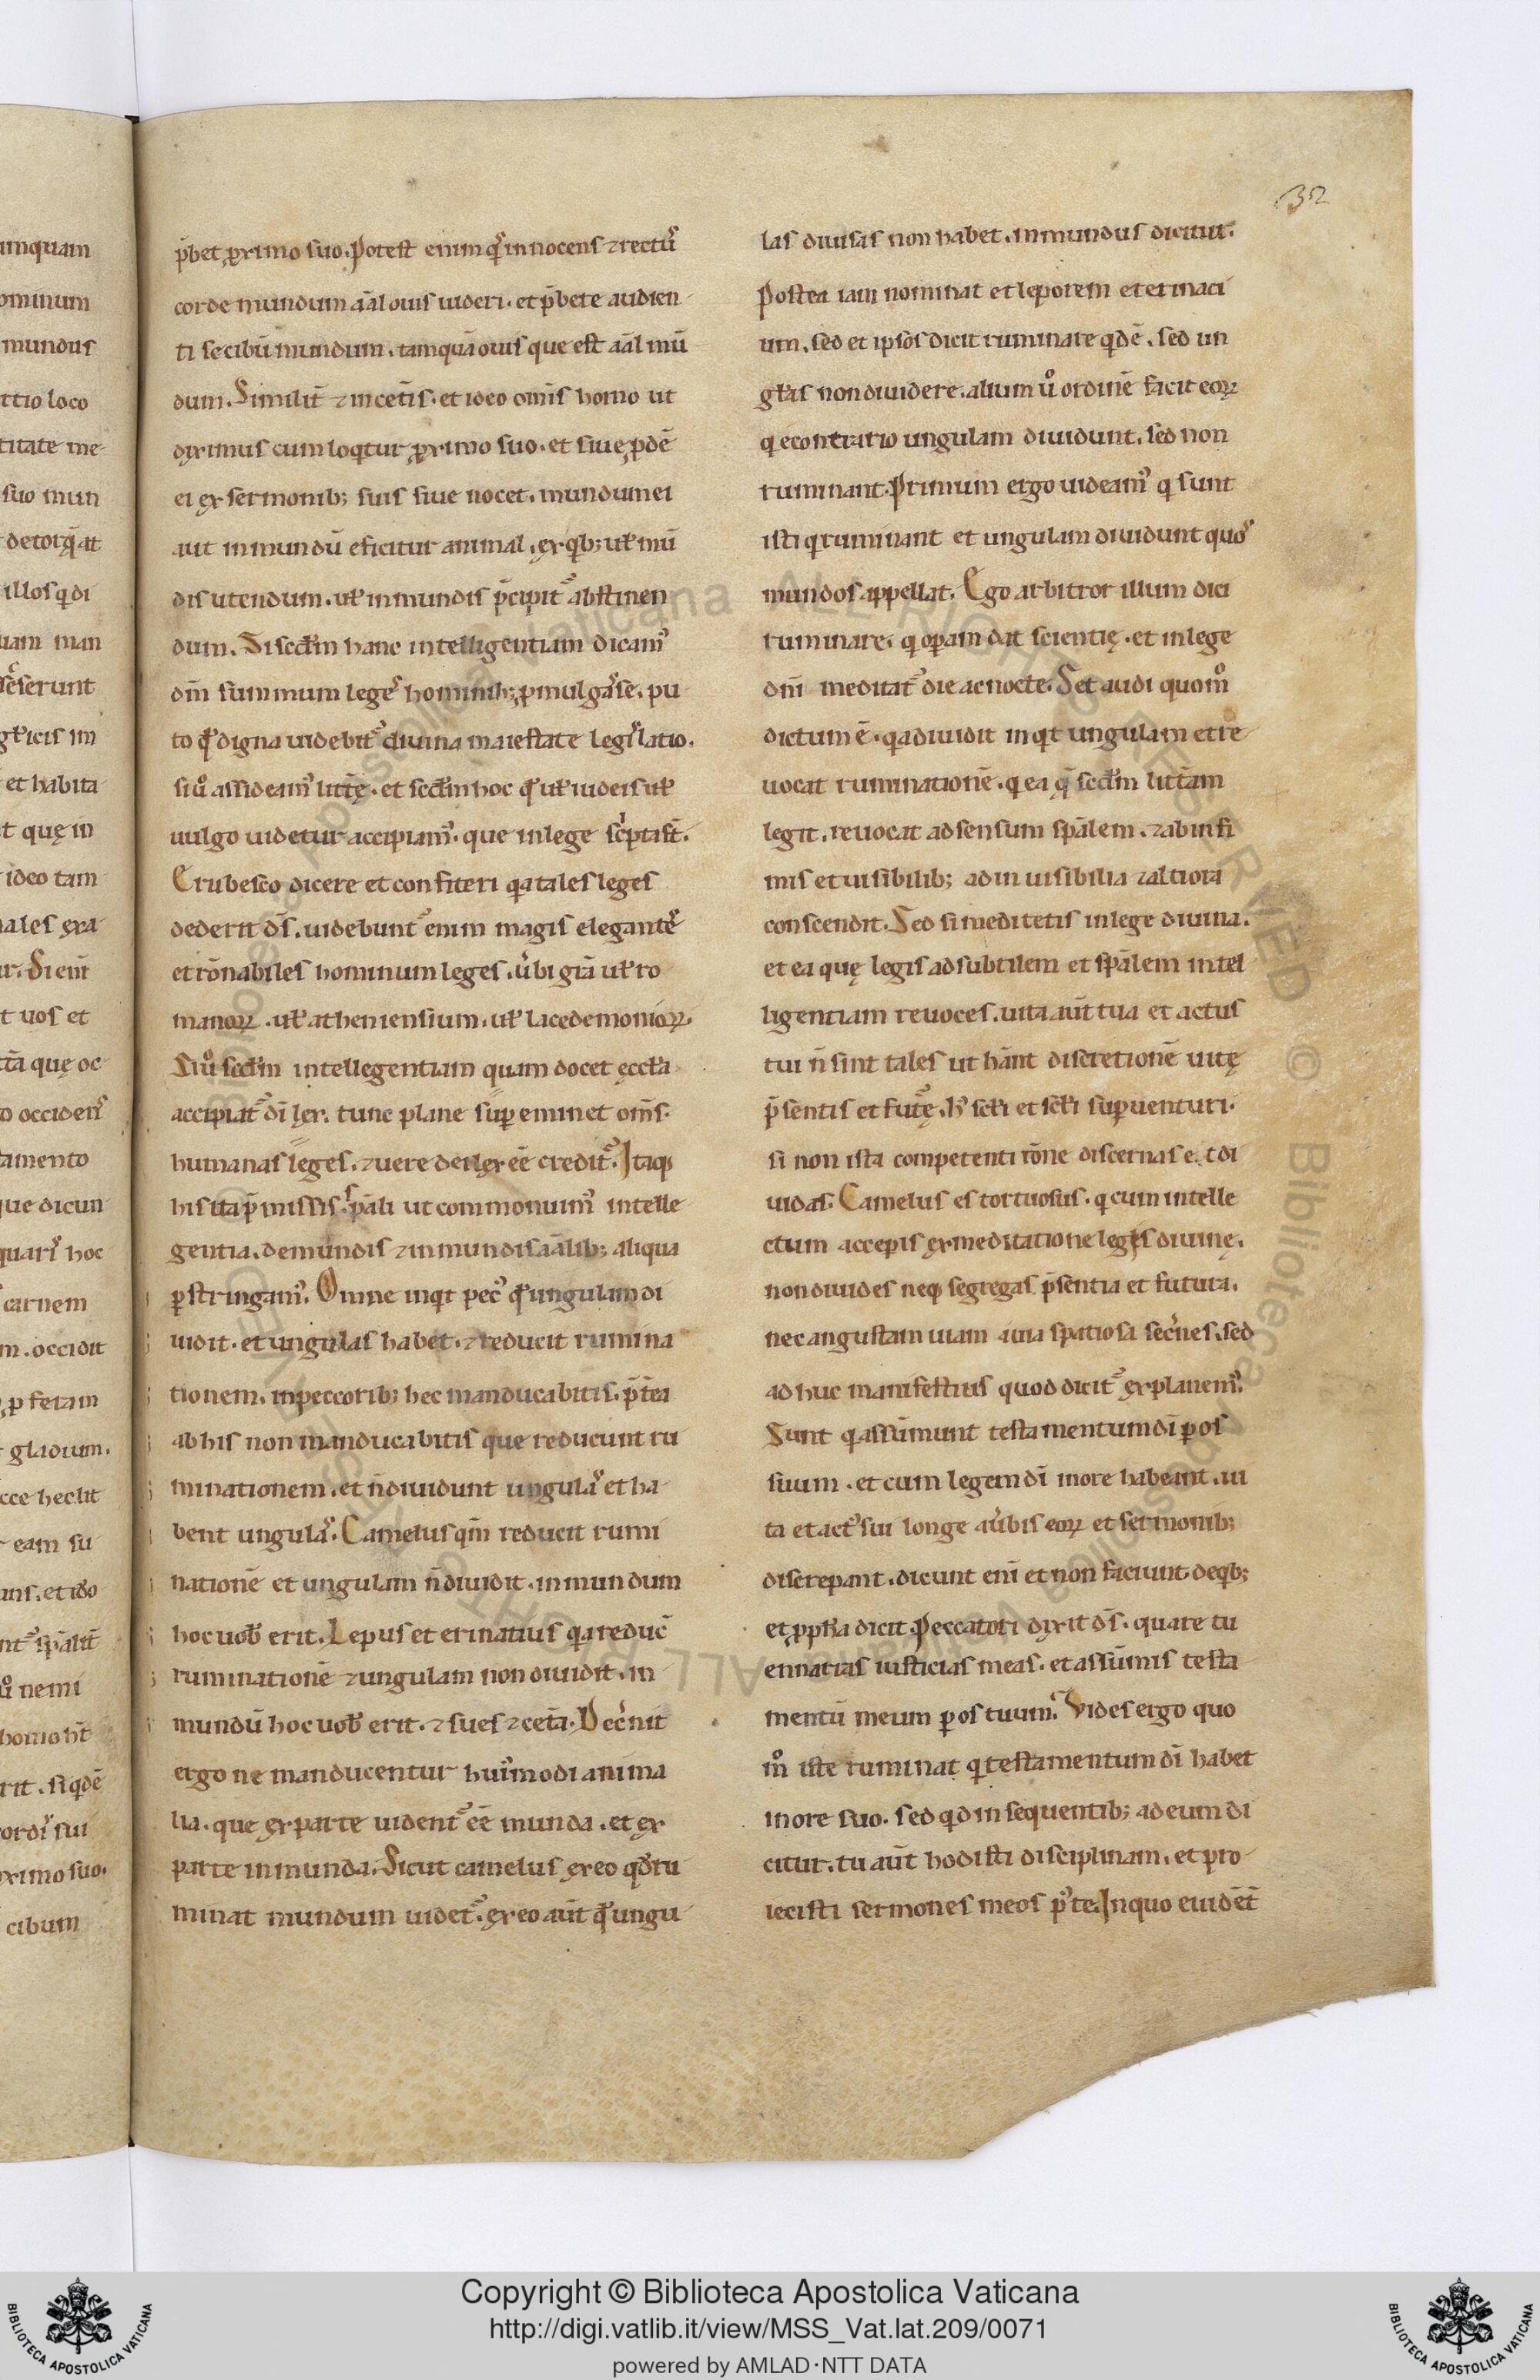 32
p̄bet ꝓximo suo. Potest enim qͥ innocens ⁊ rectuͬ
corde mundum aāl ouis uideri. et p̄bere audien
ti se cibū mundum. tamquā ouis que est aāl mū
dum. Similit̄ ⁊ in cet̄is. et ideo om̄is homo ut
dyximus cum loqͥtur ꝓximo suo. et siue ꝓdē
ei ex sermonib; suis siue nocet. mundum ei
aut inmundū eficitur animal. ex qͥb; uł mū
dis utendum. uł inmundis p̄cipit᷒ abstinen
dum. Si scd̄m hanc intelligentiam dicam᷒
dm̄ summum leges hominib; ꝓmulgasse. pu
to qͥ digna uidebit᷒ diuina maiestate legislatio.
siu̾ assideam᷒ litt̄ę. et scd̄m hoc qͥ uł iudeis uł
uulgo uidetur accipiam᷒. que in lege scͥpta s̄t.
Erubesco dicere et confiteri qͥa tales leges
dederit ds̄. uidebunt᷒ enim magis elegantes
et rōnabiles hominum leges. u̍bi gr̄a uł ro
manoꝝ. uł atheniensium. uł lacedemonioꝝ.
Siu̾ scd̄m intellegentiam quam docet ęccła
accipiat᷒ dī lex. tunc plane suꝑeminet om̄s
humanas leges. ⁊ uere dei lex eē credit᷒. Itaqꝫ
his ita p̄missis. sp̄ali ut commonuim᷒ intelle
gentia. de mundis ⁊ inmundis aālib; aliqua
ꝑstringam᷒. Omne inqͥt pec᷒ qͥ ungulam di
uidit. et ungulas habet. ⁊ reducit rumina
tionem. in peccorib; hec manducabitis. p̄t̄ea
ab his non manducabitis que reducunt ru
minationem. et n̄ diuidunt ungulas et ha
bent ungulas. Camelus qm̄ reducit rumi
nationē et ungulam n̄ diuidit. inmundum
hoc uob̄ erit. Lepus et erinatius qͥa reduc̄
ruminationē ⁊ ungulam non diuidit. in
mundū hoc uob̄ erit. ⁊ sues ⁊ cet̄a. Dec̍nit
ergo ne manducentur hui᷒modi anima
lia. que ex parte uident᷒ eē munda. et ex
parte inmunda. Sicut camelus ex eo qd̄ ru
minat mundum uidet᷒. ex eo aut̄ qͥ ungu
las diuisas non habet. inmundus dicitur.
Postea iam nominat et leporem et erinaci
um. sed et ipsos dicit ruminare qͥdē. sed un
głas non diuidere. alium u̾ ordinē facit eoꝝ
qͥ econtrario ungulam diuidunt. sed non
ruminant. Primum ergo uideam᷒ qͥ sunt
isti qͥ ruminant et ungulam diuidunt quos
mundos appellat. Ego arbitror illum dici
ruminare. qͥ oꝑam dat scientię. et in lege
dn̄i meditat᷒ die ac nocte. Set audi quom̊
dictum ē. qͥa diuidit inqͥt ungulam et re
uocat ruminationē. qͥ ea qͣ scd̄m litt̄am
legit. reuocat ad sensum sp̄alem. ⁊ ab infi
mis et uisibilib; ad inuisibilia ⁊ altiora
conscendit. Sed si meditetis in lege diuina.
et ea quę legis ad subtilem et sp̄alem intel
ligentiam reuoces. uita aut̄ tua et actus
tui n̄ sint tales ut hānt discretionē uitę
p̄sentis et fut̄ę. h᷒ scłi et scłi suꝑuenturi.
si non ista competenti rōne discernas et di
uidas. Camelus es tortuosus. qͥ cum intelle
ctum accepis ex meditatione legis diuinę.
non diuides neqꝫ segregas p̄sentia et futura.
nec angustam uiam a uia spatiosa sec̍nes. sed
ad huc manifestius quod dicit᷒ explanem᷒.
Sunt qͥ assūmunt testamentum dī ꝑ os
suum. et cum legem dī in ore habeant. ui
ta et act᷒ sui longe a u̍bis eoꝝ et sermonib;
discrepant. dicunt enī et non faciunt. de qͥb;
et ꝓpħa dicit. Peccatori dyxit ds̄. quare tu
ennarras iusticias meas. et assūmis testa
mentū meum ꝑ os tuum. Vides ergo quo
m̊ iste ruminat qͥ testamentum dī habet
in ore suo. sed qͥd in sequentib; ad eum di
citur. tu aut̄ hodisti disciplinam. et pro
iecisti sermones meos p᷒ te. In quo euidēt̄
Copyright © Biblioteca Apostolica Vaticana
http://digi.vatlib.it/view/MSS_Vat.lat.209/0071
powered by AMLAD·NTT DATA
BIBLIOTECA APOSTOLICA VATICANA
BIBLIOTECA APOSTOLICA VATICANA